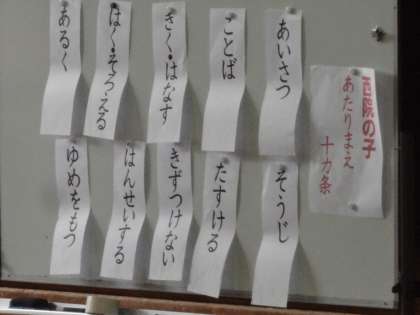 西陵の子
あたりまえ
十カ条
あいさつ
ことば
きく・はなす
はく・そろえる
あるく
そうじ
たすける
きずつけない
はんせいする
ゆめをもつ